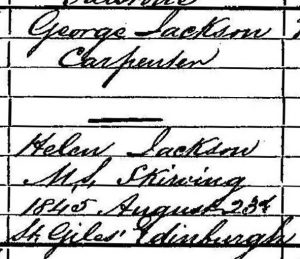 George Jackson
Carpenter
Helen Jackson
M.S. Skirving
1845 August 23d
St Giles' Edinburgh